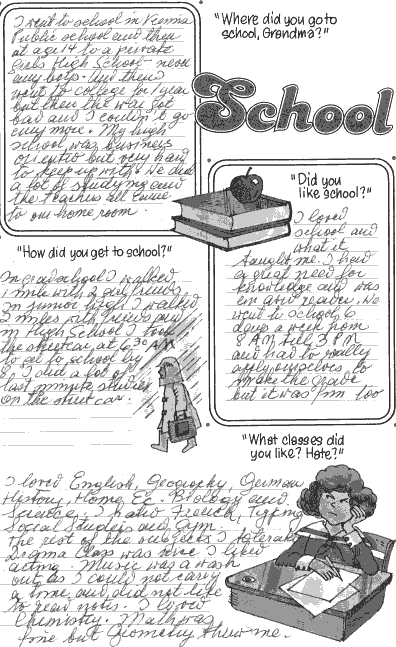 "Where did you go to
school, Grandma?"
I went to school in Vienna
Public school and then
at age 14 to a private
Girls High School - never
any boys. And then I
went to college for 1 year
but then the war got
bad and I couldn't go
any more. My high
school was business
oriented but very hard
to keep up with. We did
a lot of studying and
the teachers all came
to our home room.
School
"Did you
like school?"
I loved
school and
what it
taught me. I had
a great need for
knowledge and was
an avid reader. We
went to school 6
days a week from
8 AM till 3 PM
and had to really
apply ourselves to
make the grade
but it was fun too
"How did you get to school?"
In grad school I walked
1 mile with 2 girl friends
In junior high I walked
2 miles with friends and
in High School I took
the streetcar at 6:30 AM
to get to school by
8. I did a lot of
last minute studies
on the street car.
"What classes did
you like? Hate?"
I loved English, Geography, German
History, Home Ec. Biology and
Science. I hated French, Typing
Social Studies and Gym.
the rest of the subjects I tolerated
Drama Class was nice I liked
acting. Music was a wash
out as I could not carry
a tune and did not like
to read notes. I loved
Chemistry. Math was
fine but Geometry threw me.